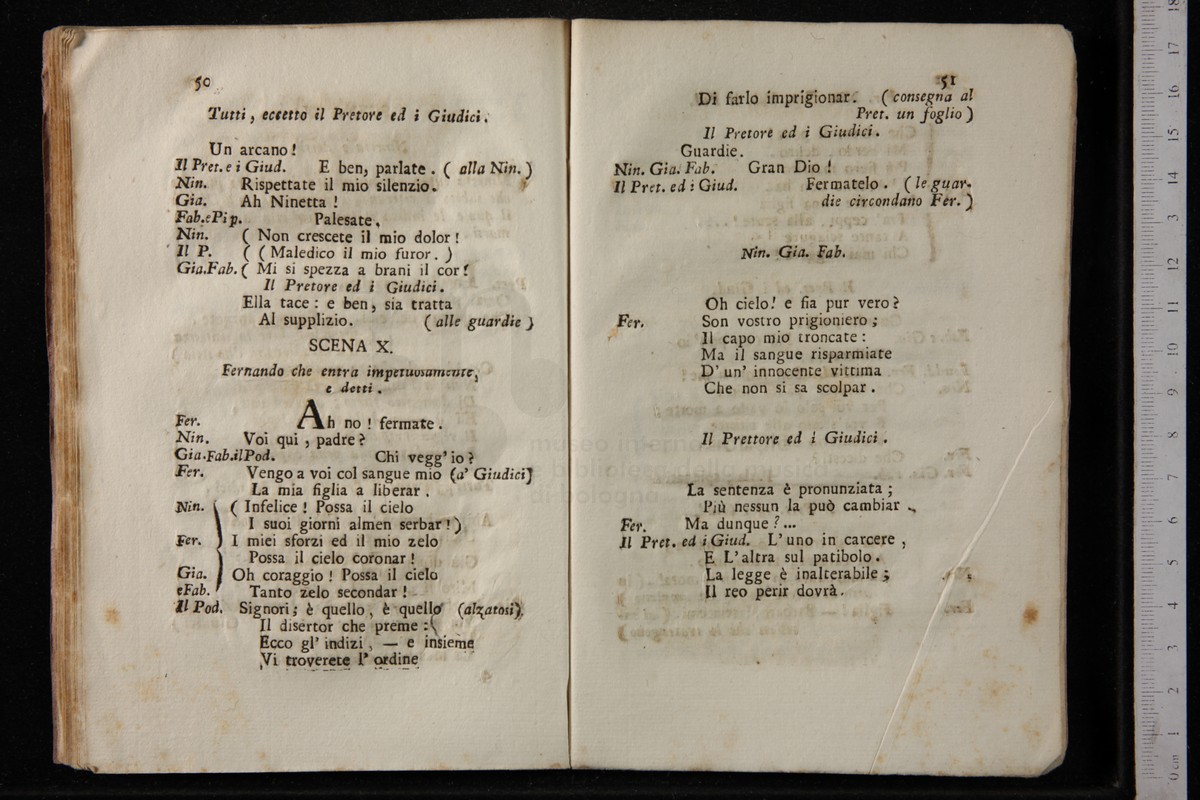 50
Tutti, eccetto il Pretore ed i Giudici.
Un arcano!
Il Pret. e i Giud. E ben, parlate. ( alla Nin. )
Nin. Rispettate il mio silenzio.
Gia. Ah Ninetta!
Fab. e Pip. Palesate.
Nin. ( Non crescete il mio dolor!
Il P. ( ( Maledico il mio furor. )
Gia. Fab. ( Mi si spezza a brani il cor!
Il Pretore ed i Giudici.
Ella tace: e ben, sia tratta
Al supplizio. ( alle guardie )
SCENA X.
Fernando che entra impetuosamente,
e detti.
Fer. Ah no! fermate.
Nin. Voi qui, padre?
Gia. Fab. il Pod. Chi vegg' io?
Fer. Vengo a voi col sangue mio (a' Giudici)
La mia figlia a liberar.
Nin. ( Infelice! Possa il cielo
I suoi giorni almen serbar!)
Fer. I miei sforzi ed il mio zelo
Possa il cielo coronar!
Gia. Oh coraggio! Possa il cielo
e Fab. Tanto zelo secondar!
Il Pod. Signori; è quello, è quello (alzatosi)
Il disertor che preme:
Ecco gl' indizi, — e insieme
Vi troverete l' ordine
51
Di farlo imprigionar. ( consegna al
Pret. un foglio )
Il Pretore ed i Giudici.
Guardie.
Nin. Gia. Fab. Gran Dio!
Il Pret. ed i Giud. Fermatelo. ( le guar-
die circondano Fer. )
Nin. Gia. Fab.
Oh cielo! e fia pur vero?
Fer. Son vostro prigioniero;
Il capo mio troncate:
Ma il sangue risparmiate
D' un' innocente vittima
Che non si sa scolpar.
Il Prettore ed i Giudici.
La sentenza è pronunziata;
Più nessun la può cambiar.
Fer. Ma dunque?...
Il Pret. ed i Giud. L' uno in carcere,
E L' altra sul patibolo.
La legge è inalterabile;
Il reo perir dovrà.
museo internazionale
e biblioteca della musica
di bologna
0 cm 1 2 3 4 5 6 7 8 9 10 11 12 13 14 15 16 17 18